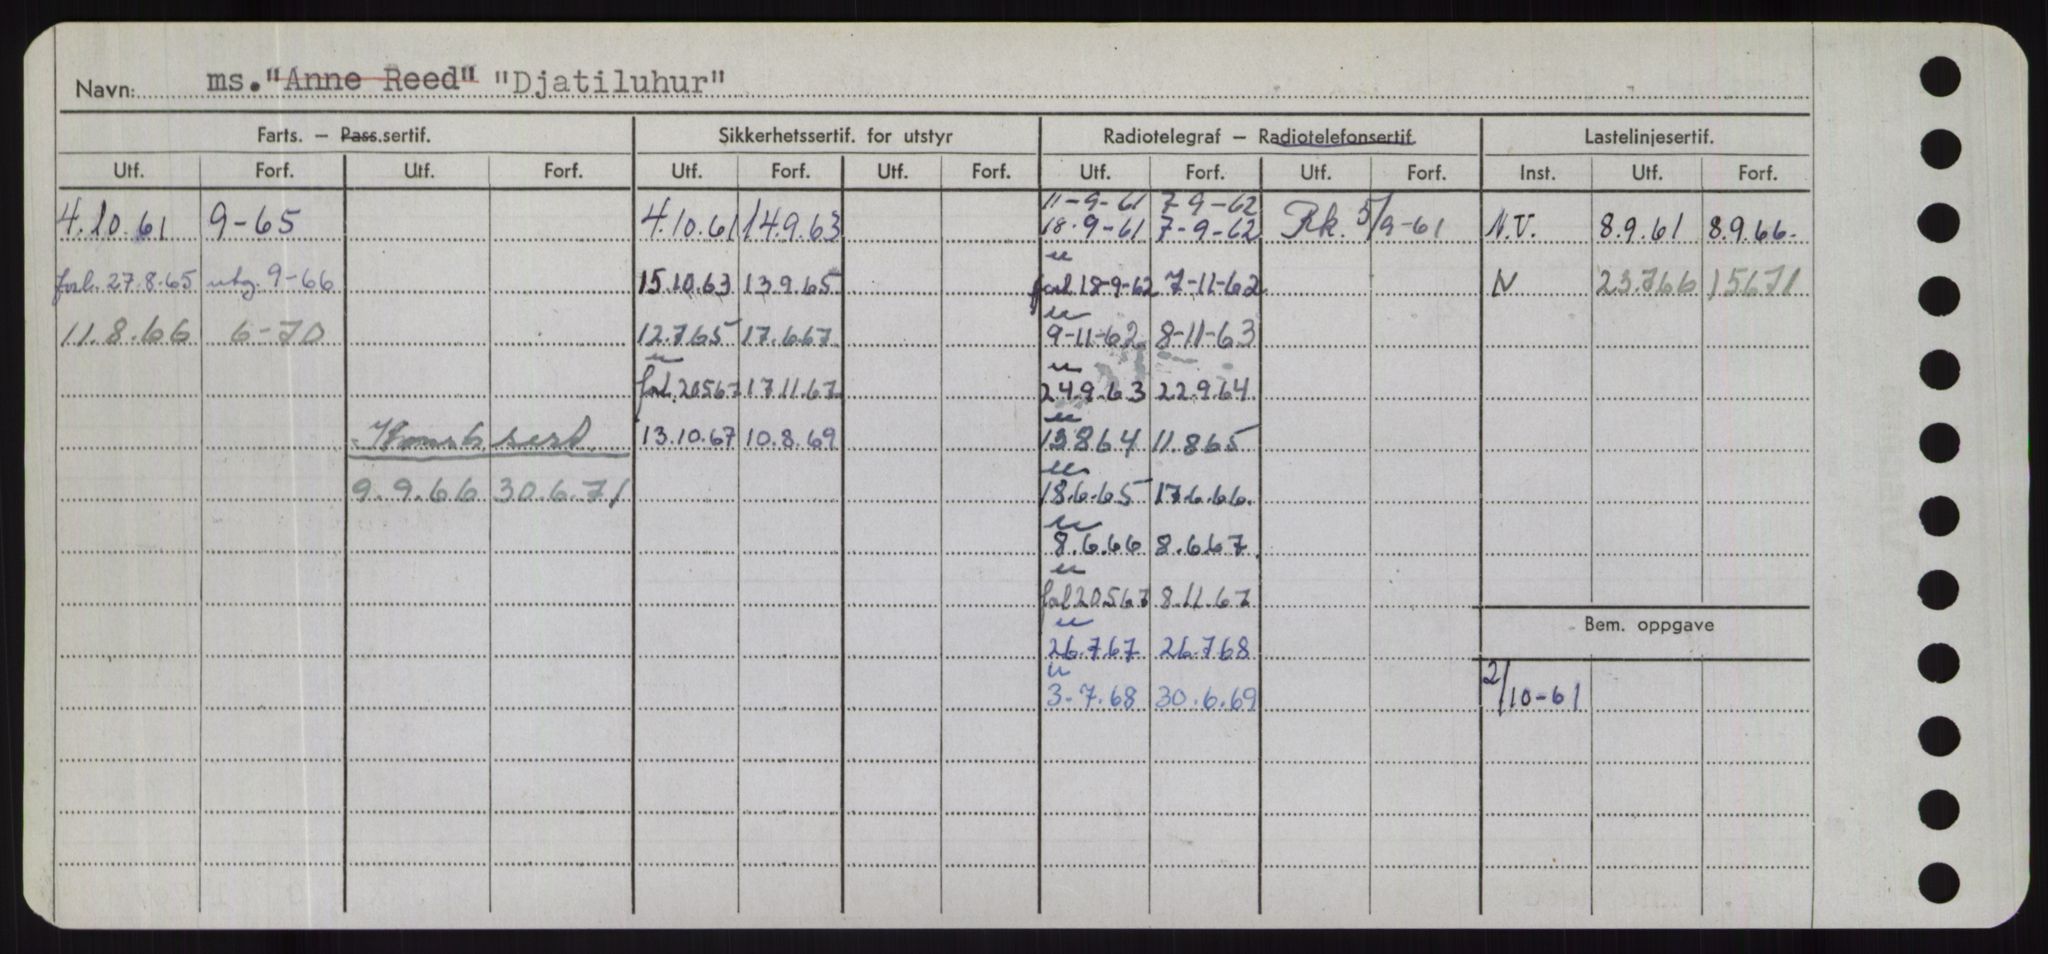 Navn: ms. "Anne Reed" "Djatiluhur"
Farts. — Pass.sertif. Sikkerhetssertif. for utstyr Radiotelegraf — Radiotelefonsertif. Lastelinjesertif.
Utf. Forf. Utf. Forf. Utf. Forf. Utf. Forf. Utf. Forf. Utf. Forf. Inst. Utf. Forf.
11-9-61 7-9-62
4.10.61 9-65 4.10.61 14.9.63 18.9-61 7-9-62 Rk. 5/9-61 N.V. 8.9.61 8.9.66.
forl. 27.8.65 utg. 9-66 15.10.63 13.9.65 forl 18-9-62 7-11-62 N 23.7.66 15.6.71
11.8.66 6-70 12.7.65 17.6.67 9-11-62 8-11-63
forl. 20.5.67 17.11.67 24.9.63 22.9.64
sert. 13.10.67 10.8.69 13.8.64 11.8.65
9.9.66 30.6.71 18.6.65 17.6.66.
8.6.66 8.6.67.
forl 20.5.67 8.11.67
Bem. oppgave
26.7.67 26.7.68
3.7.68 30.6.69 2/10-61